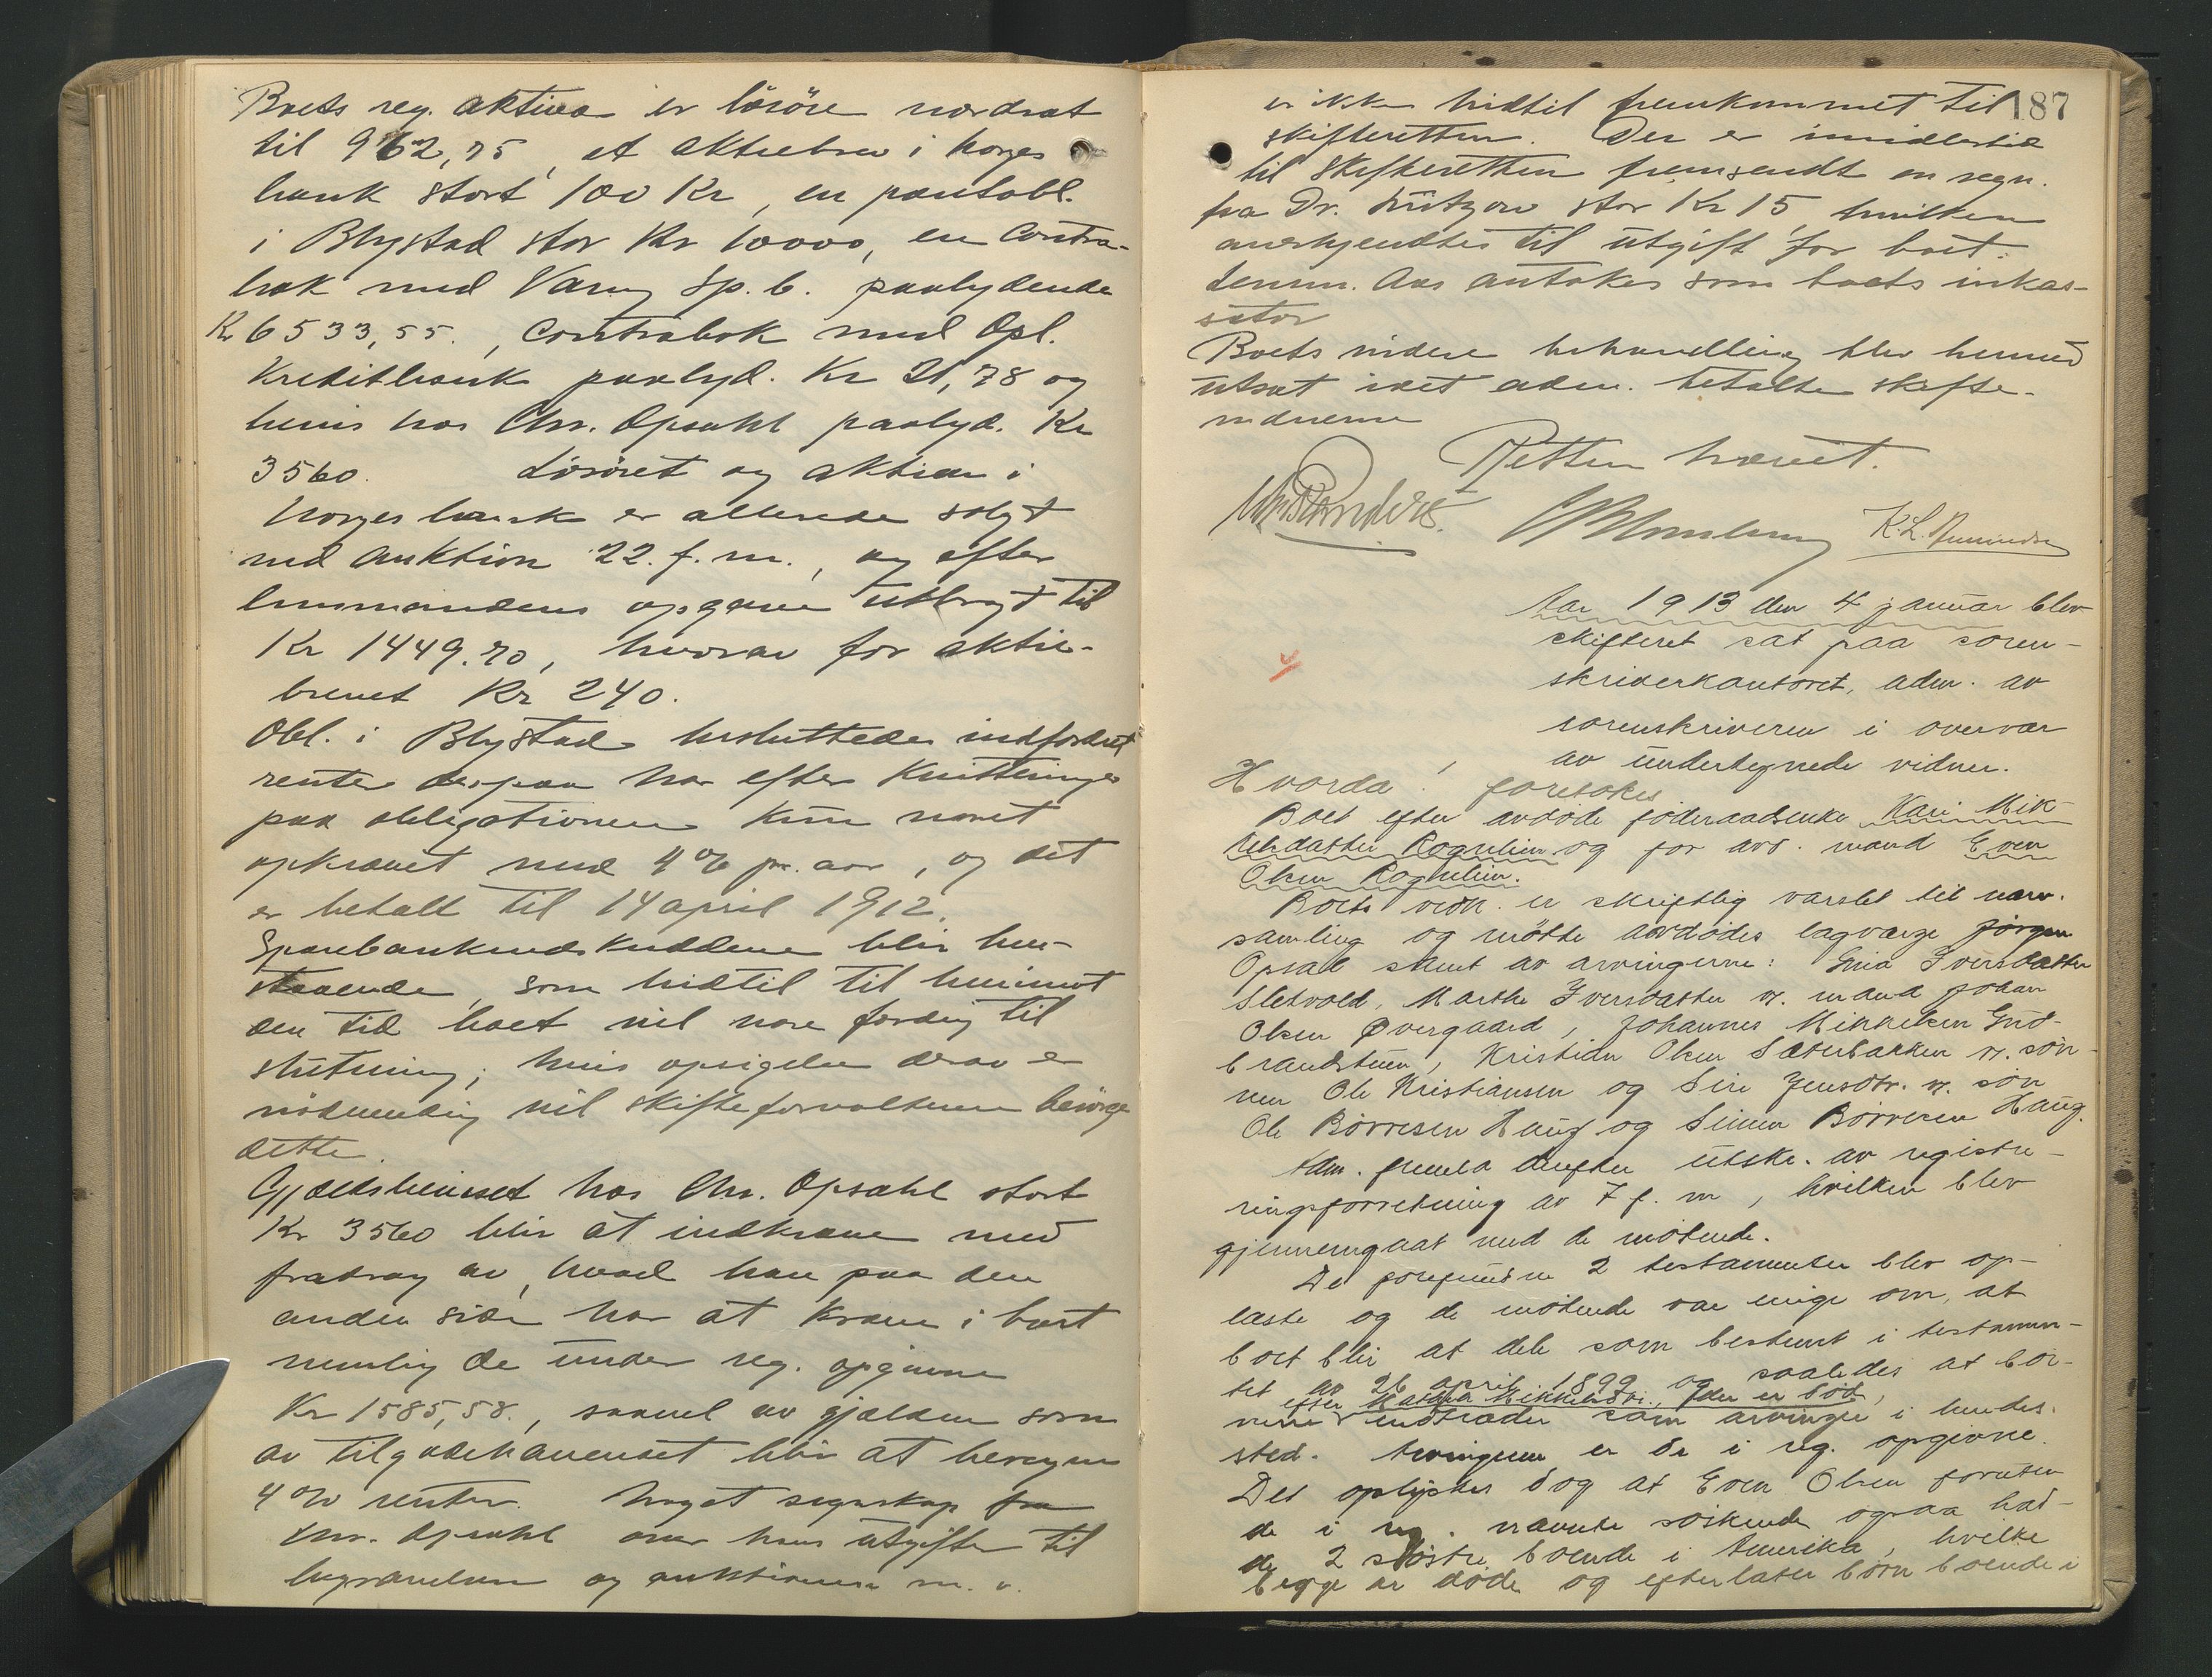 Boets reg. aktiva er lösöre vordsat
til 962,75, et aktiebrev i Norges
bank stort 100 Kr, en pantobl.
i Blystad stor Kr 10000, en Contra-
bok med Vang Sp.b. paalydende
Kr 6533,55., Contrabok med Opl.
Kreditbank paalyd. Kr 21,78 og
bevis hos Chr. Opsahl paalyd. Kr
3560. Lösöret og aktien i
Norges bank er allerede solgt
ved auktion 22. f. m., og efter
lensmandens opgave utbragt til
Kr 1449.70, hvorav for aktie-
brevet Kr 240.
Obl. i Blystad besluttedes indfordret
renter derpaa har efter Kvitteringer
paa obligationen kun været
opkrævet med 4% pr. aar, og det
er betalt til 14 april 1912.
Sparebankindskuddene blir hen-
staaende, som hidtil til henimot
den tid boet vil være færdig til
slutning; hvis opsigelse derav er
nödvendig vil skifteforvalteren besörge
dette.
Gjældsbeviset hos Chr. Opsahl stort
Kr 3560 blir at indkræve med
fradrag av, hvad han paa den
anden side har at kræve i boet
nemlig de under reg. opgivne
Kr 1585,58., saavel av gjælden som
av tilgodehavendet blir at beregne
4% renter. Noget regnskap fra
Chr. Opsahl over hans utgifter til
begravelsen og auktionen m. v.
187
er ikke hidtil fremkommet til
skifteretten. Der er imidlertid
til skifteretten fremsendt en regn.
fra Dr. Lützow stor Kr 15, hvilken
anerkjendtes til utgift for boet.
Lensm. Aas antokes som boets inkas-
sator
Boets videre behandling blev hermed
utsat idet adm. betalte skifte-
vidnerne
Retten hævet.
K. L. Amundsen
Aar 1913 den 4 januar blev
skifteret sat paa soren-
skriverkontoret, adm. av
sorenskriveren i overvær
av undertegnede vidner.
Hvorda! foretokes
Boet efter avdöde föderaadsenke Kari Mik-
kelsdatter Rognlien og for avd. mand Even
Olsen Rognlien.
Boets vedk. er skriftlig varslet til nærv.
samling og mötte avdödes lagverge Jörgen
Opsal samt av arvingerne: Gina Iversdatter
Sletvold, Marthe Iversdatter v. mand Johan
Olsen Övergaard, Johannes Mikkelsen Gud-
brandstuen, Kristian Olsen Sæterbakken v. sön-
nen Ole Kristiansen og Siri Jensdtr. v. sön
Ole Börresen Haug og Simen Börresen Haug.
Adm. fremla derefter utskr. av registre-
ringsforretning av 7 f. m, hvilken blev
gjennemgaat med de mötende.
De forefundne 2 testamenter blev op-
læste og de mötende var enige om, at
boet blir at dele som bestemt i testamen-
tet av 26 april 1899 og saaledes at bör-
efter Mathea Mikkelsdtr., som er död,
nene indtræder som arvinger i hendes
sted. Arvingerne er de i reg. opgivne.
Det oplystes dog at Even Olsen foruten
de i reg. nævnte söskende ogsaa had-
de 2 söstre boende i Amerika, hvilke
begge er döde og efterlater börn boende i